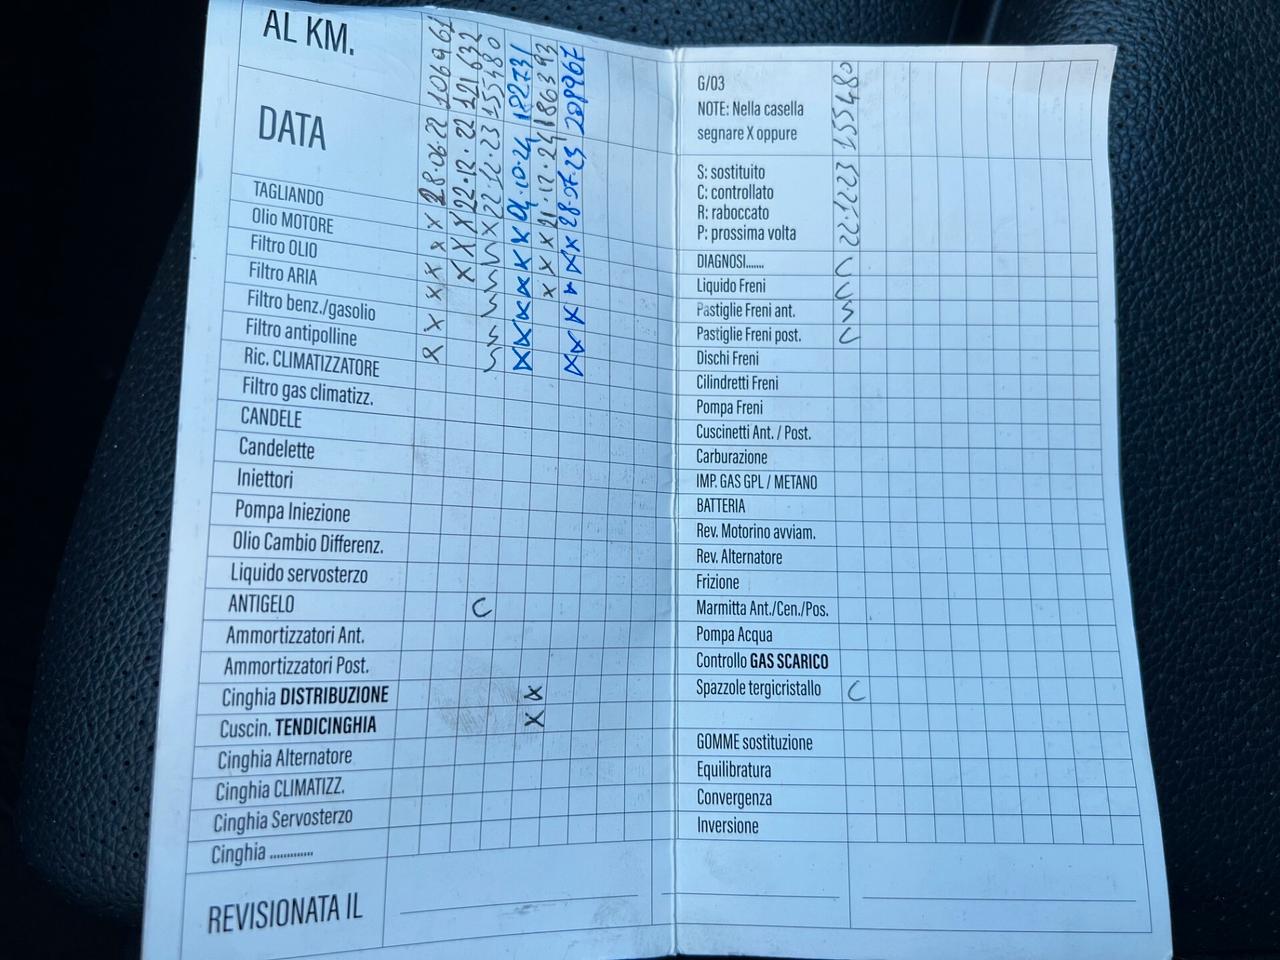 AL KM. 106961 121632 155480 182731 186393 208967
DATA 28.06.22 22.12.22 22.12.23 04.10.24 21.12.24 28.07.25
TAGLIANDO X X X X X X
Olio MOTORE
Filtro OLIO
Filtro ARIA
Filtro benz./gasolio
Filtro antipolline
Ric. CLIMATIZZATORE
Filtro gas climatizz.
CANDELE
Candelette
Iniettori
Pompa Iniezione
Olio Cambio Differenz.
Liquido servosterzo
ANTIGELO C
Ammortizzatori Ant.
Ammortizzatori Post.
Cinghia DISTRIBUZIONE X
Cuscin. TENDICINGHIA X
Cinghia Alternatore
Cinghia CLIMATIZZ.
Cinghia Servosterzo
Cinghia .............
REVISIONATA IL
G/03
NOTE: Nella casella
segnare X oppure
155480
S: sostituito
C: controllato
R: raboccato
P: prossima volta
22.12.23
DIAGNOSI....... C
Liquido Freni C
Pastiglie Freni ant. S
Pastiglie Freni post. C
Dischi Freni
Cilindretti Freni
Pompa Freni
Cuscinetti Ant. / Post.
Carburazione
IMP. GAS GPL / METANO
BATTERIA
Rev. Motorino avviam.
Rev. Alternatore
Frizione
Marmitta Ant./Cen./Pos.
Pompa Acqua
Controllo GAS SCARICO
Spazzole tergicristallo C
GOMME sostituzione
Equilibratura
Convergenza
Inversione